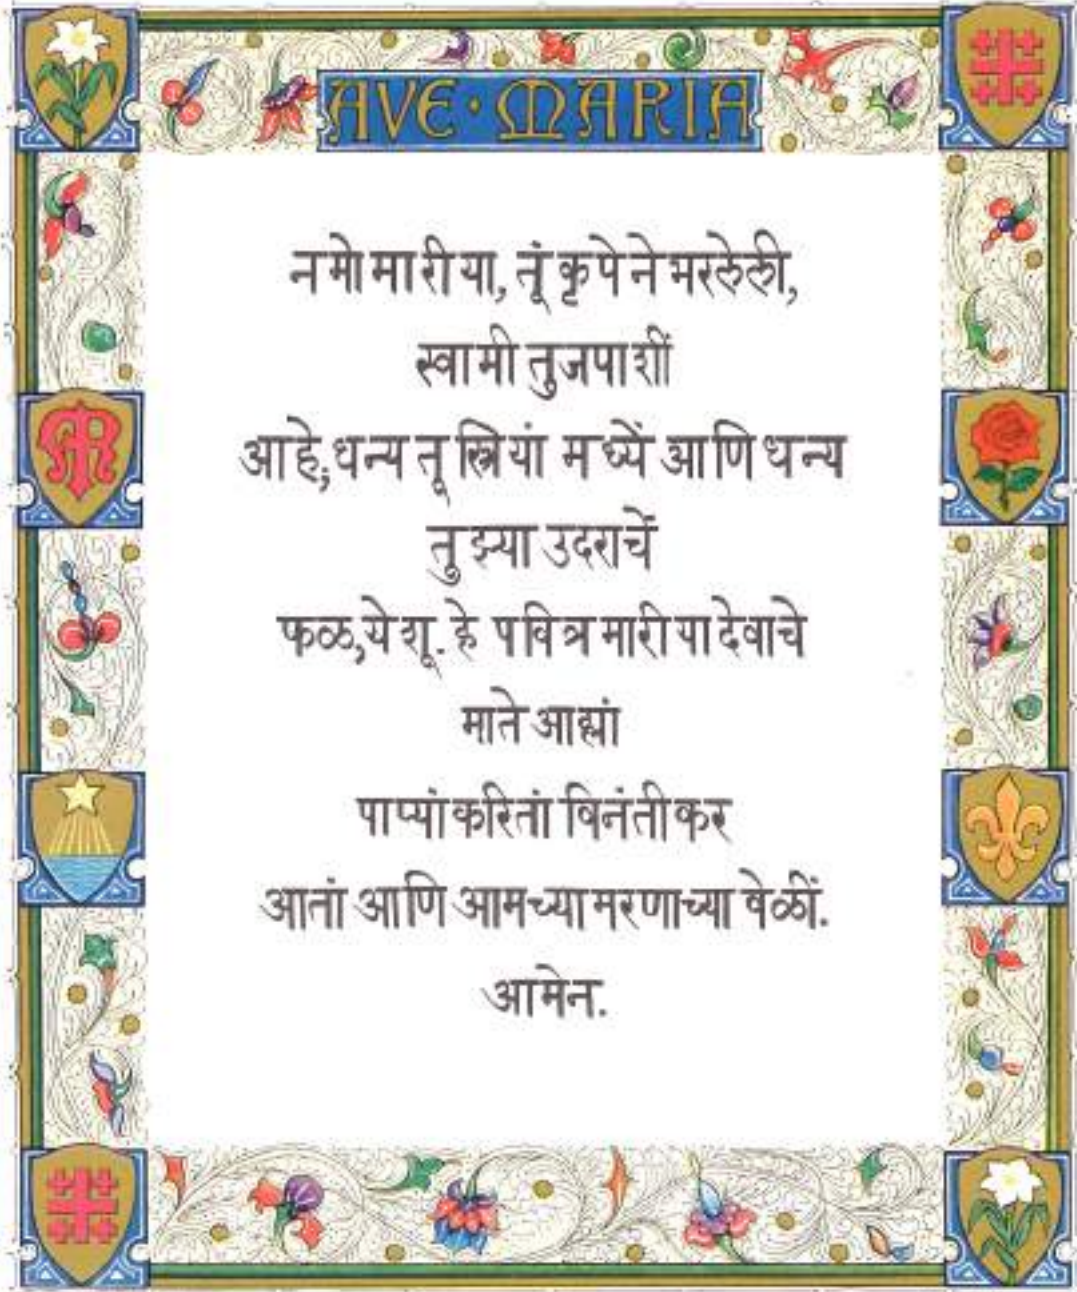 AVE · MARIA
नमो मारीया, तूं कृपेने भरलेली,
स्वामी तुजपाशीं
आहे; धन्य तू स्त्रियां मध्यें आणि धन्य
तुझ्या उदराचें
फळ, येशू. हे पवित्र मारीया देवाचे
माते आह्मां
पाप्यांकरितां विनंती कर
आतां आणि आमच्या मरणाच्या वेळीं.
आमेन.